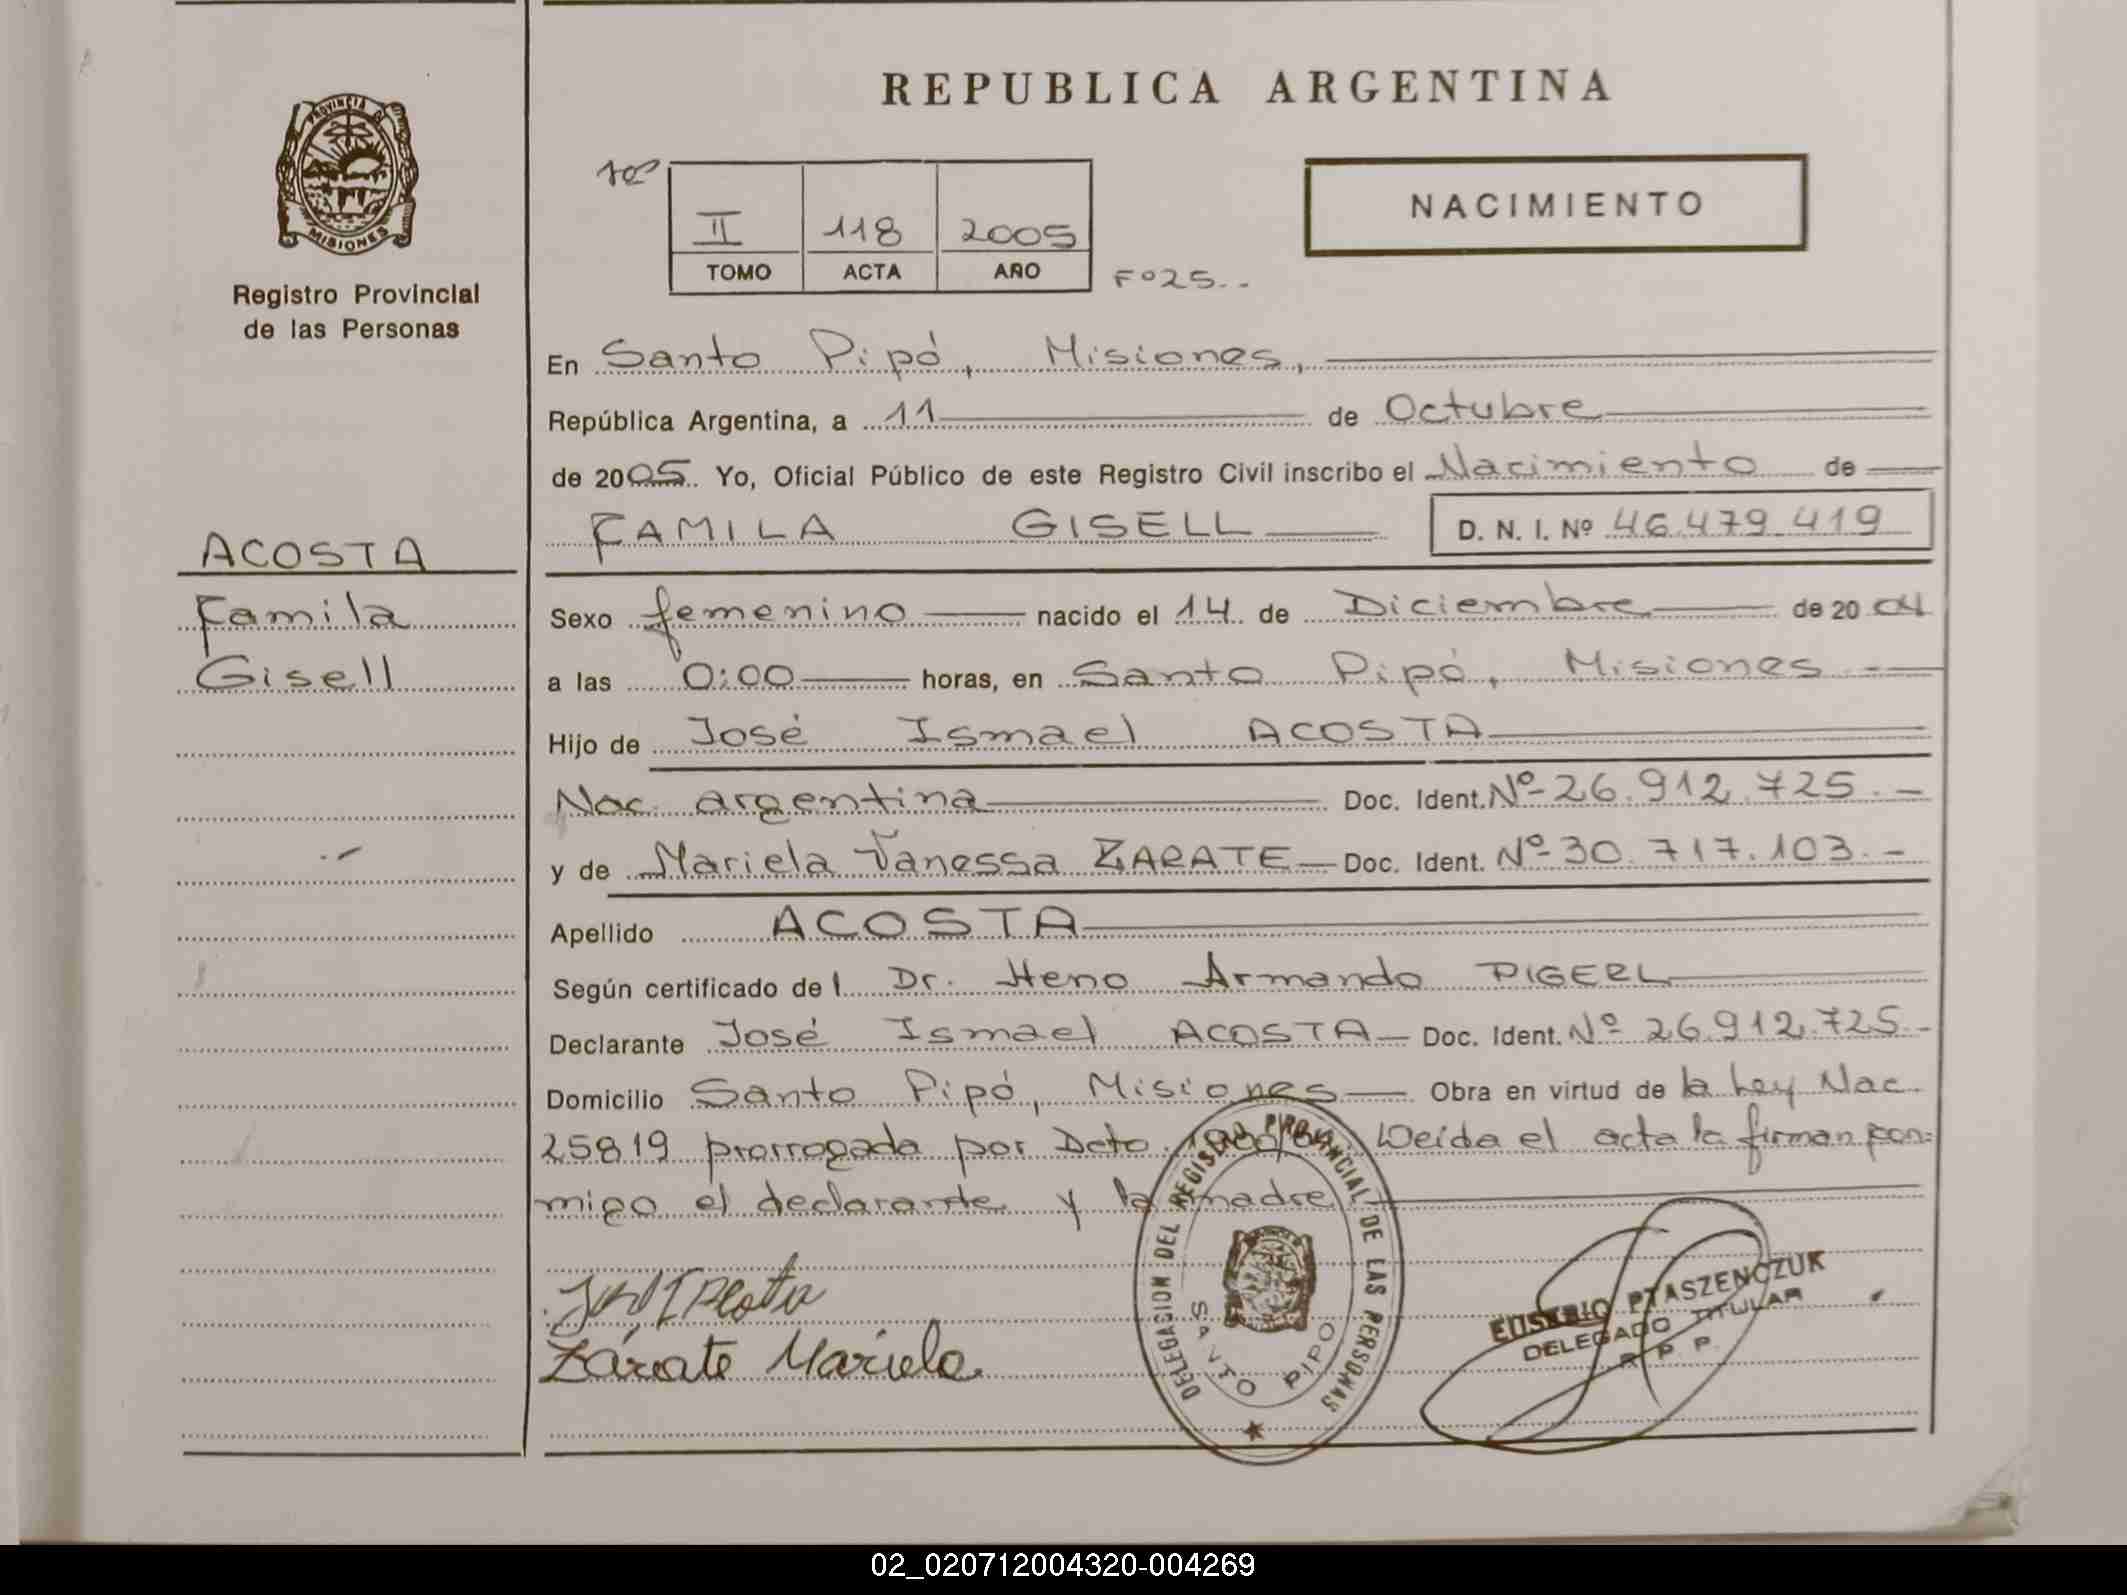 REPUBLICA ARGENTINA
PROVINCIA DE
MISIONES
Registro Provincial
de las Personas
NACIMIENTO
II 118 2005
TOMO ACTA AÑO
Fº25..
En Santo Pipó, Misiones,
República Argentina, a 11 de Octubre
de 2005. Yo, Oficial Público de este Registro Civil inscribo el Nacimiento de
ACOSTA
FAMILA GISELL D. N. I. Nº 46.479.419
Famila
Gisell
Sexo femenino nacido el 14 de Diciembre de 2004
a las 0:00 horas, en Santo Pipó, Misiones
Hijo de José Ismael ACOSTA
Nac. argentina Doc. Ident. Nº 26.912.725.-
y de Mariela Vanessa ZARATE Doc. Ident. Nº 30.717.103.-
Apellido ACOSTA
Según certificado del Dr. Heno Armando PIGERL
Declarante José Ismael ACOSTA Doc. Ident. Nº 26.912.725.-
Domicilio Santo Pipó, Misiones Obra en virtud de la Ley Nac.
25819 prorrogada por Dcto. Leída el acta la firman con-
migo el declarante y la madre
Zárate Mariela
DELEGACION DEL REGISTRO PROVINCIAL DE LAS PERSONAS
SANTO PIPO
EUSEBIO PTASZENCZUK
DELEGADO TITULAR
R. P. P.
02_020712004320-004269